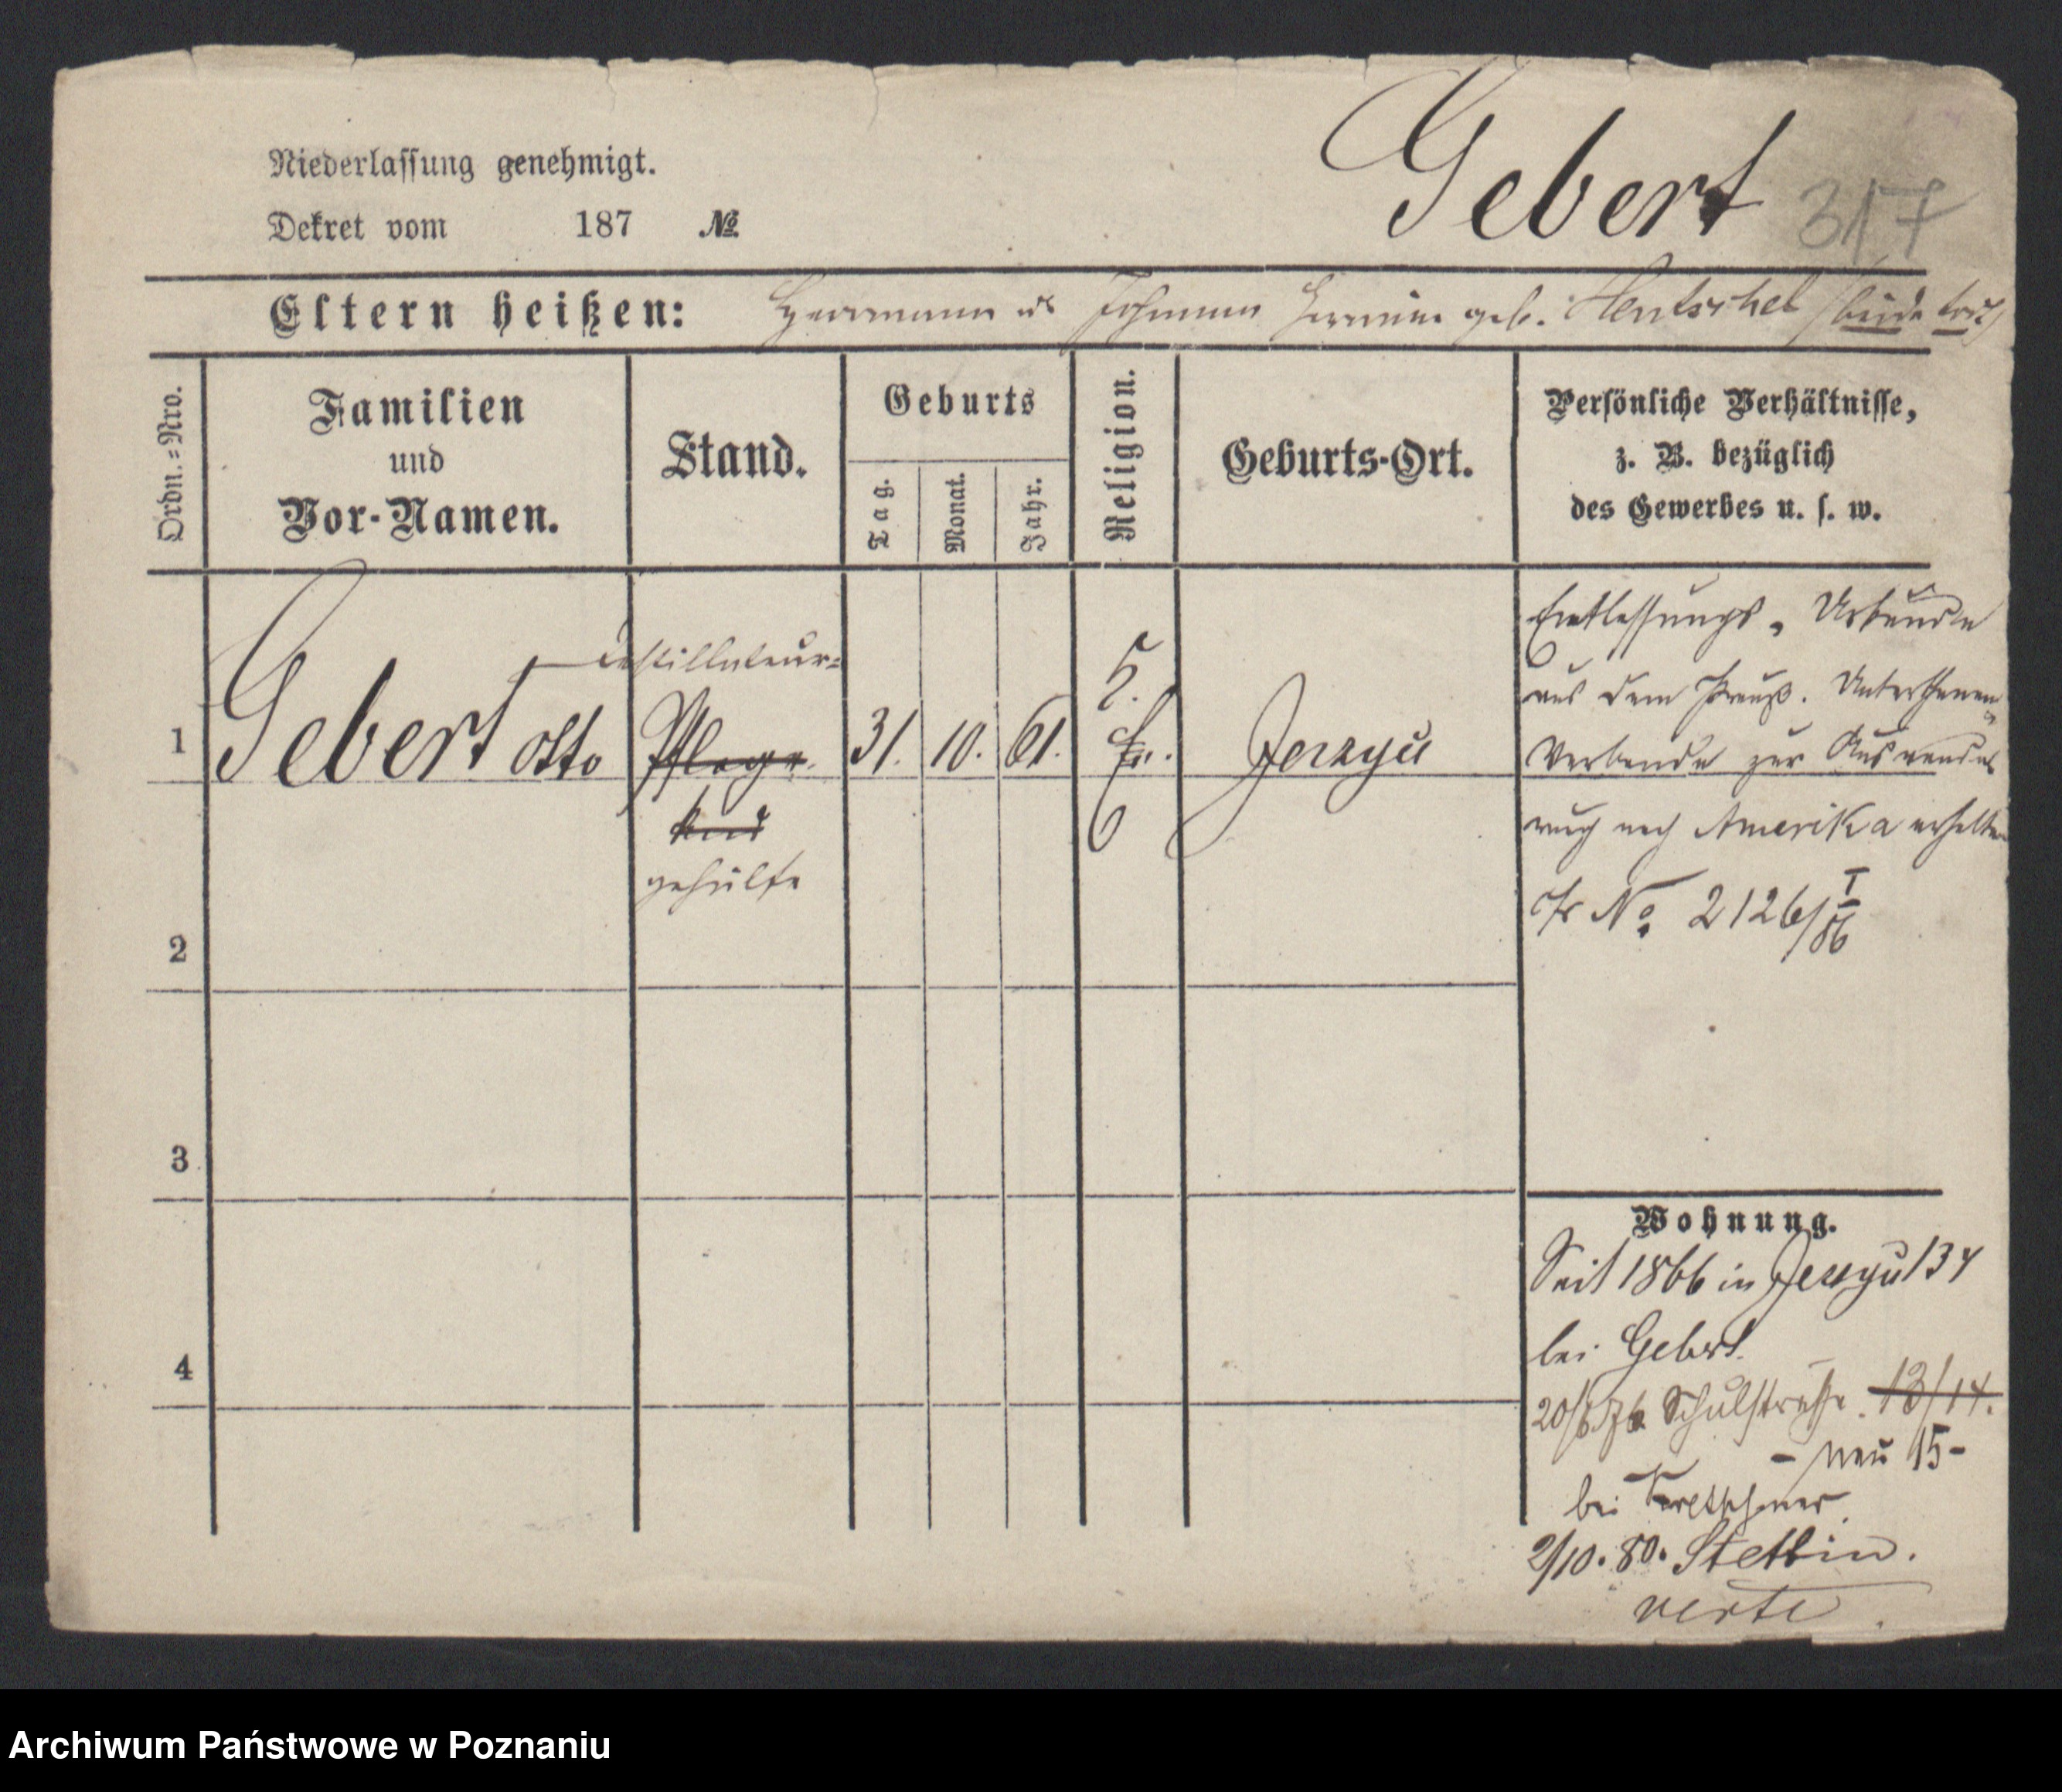 Gebert 317
Niederlassung genehmigt.
Dekret vom 187 №
Eltern heißen: Herrmann u. Johanna Hermine geb. Hentschel (beide tot)
Ordn.=Nro.
Familien
und
Vor-Namen.
Stand.
Geburts
Tag.
Monat.
Jahr.
Religion.
Geburts-Ort.
Persönliche Verhältnisse,
z. B. bezüglich
des Gewerbes u. s. w.
1 Gebert Otto
Destillateur=
Pflege
kind
gehülfe
31. 10. 61.
Jerzyce
Entlassungs-Urkunde
aus dem Preuß. Unterthanen
Verbande zur Auswande
rung nach Amerika erhalten
cfr No. 2126/I/86
2
3
4
Wohnung.
Seit 1866 in Jerzyce 134
bei Gebert.
20/ 76 Schulstraße. 13/14.
- neu 15-
bei Kretschmer.
2/10. 80. Stettin.
verte.
Archiwum Państwowe w Poznaniu